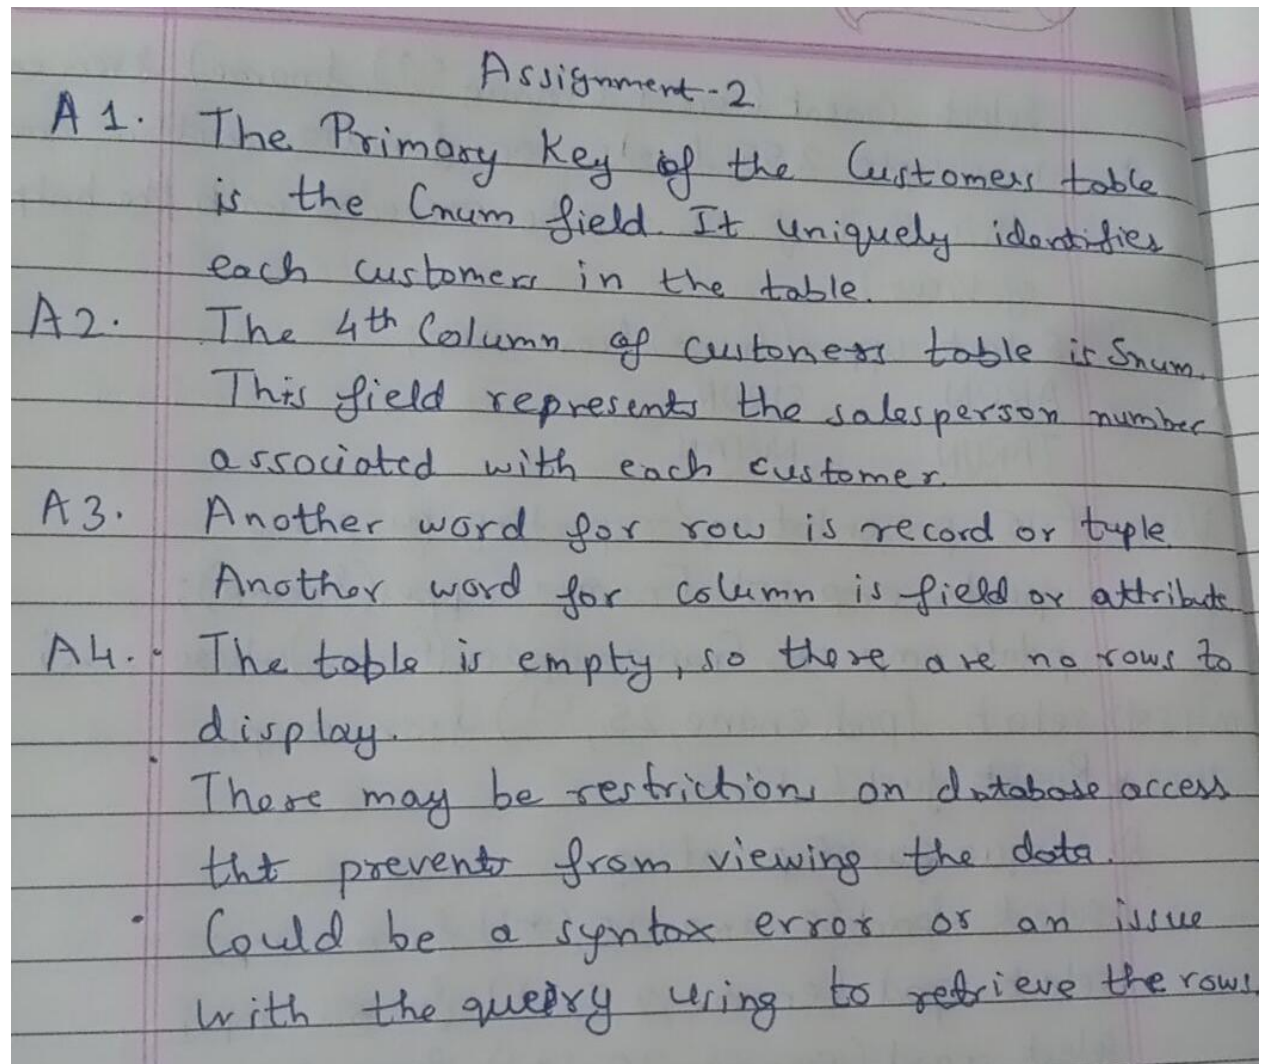 Assignment-2
A 1. The Primary Key of the Customers table
is the Cnum field. It uniquely identifies
each customers in the table.
A2. The 4th Column of customers table is Snum.
This field represents the salesperson number
associated with each customer.
A3. Another word for row is record or tuple
Another word for column is field or attribute
A4. • The table is empty, so there are no rows to
display.
• There may be restrictions on database access
tht prevents from viewing the data.
• Could be a syntax error or an issue
with the query using to retrieve the rows.